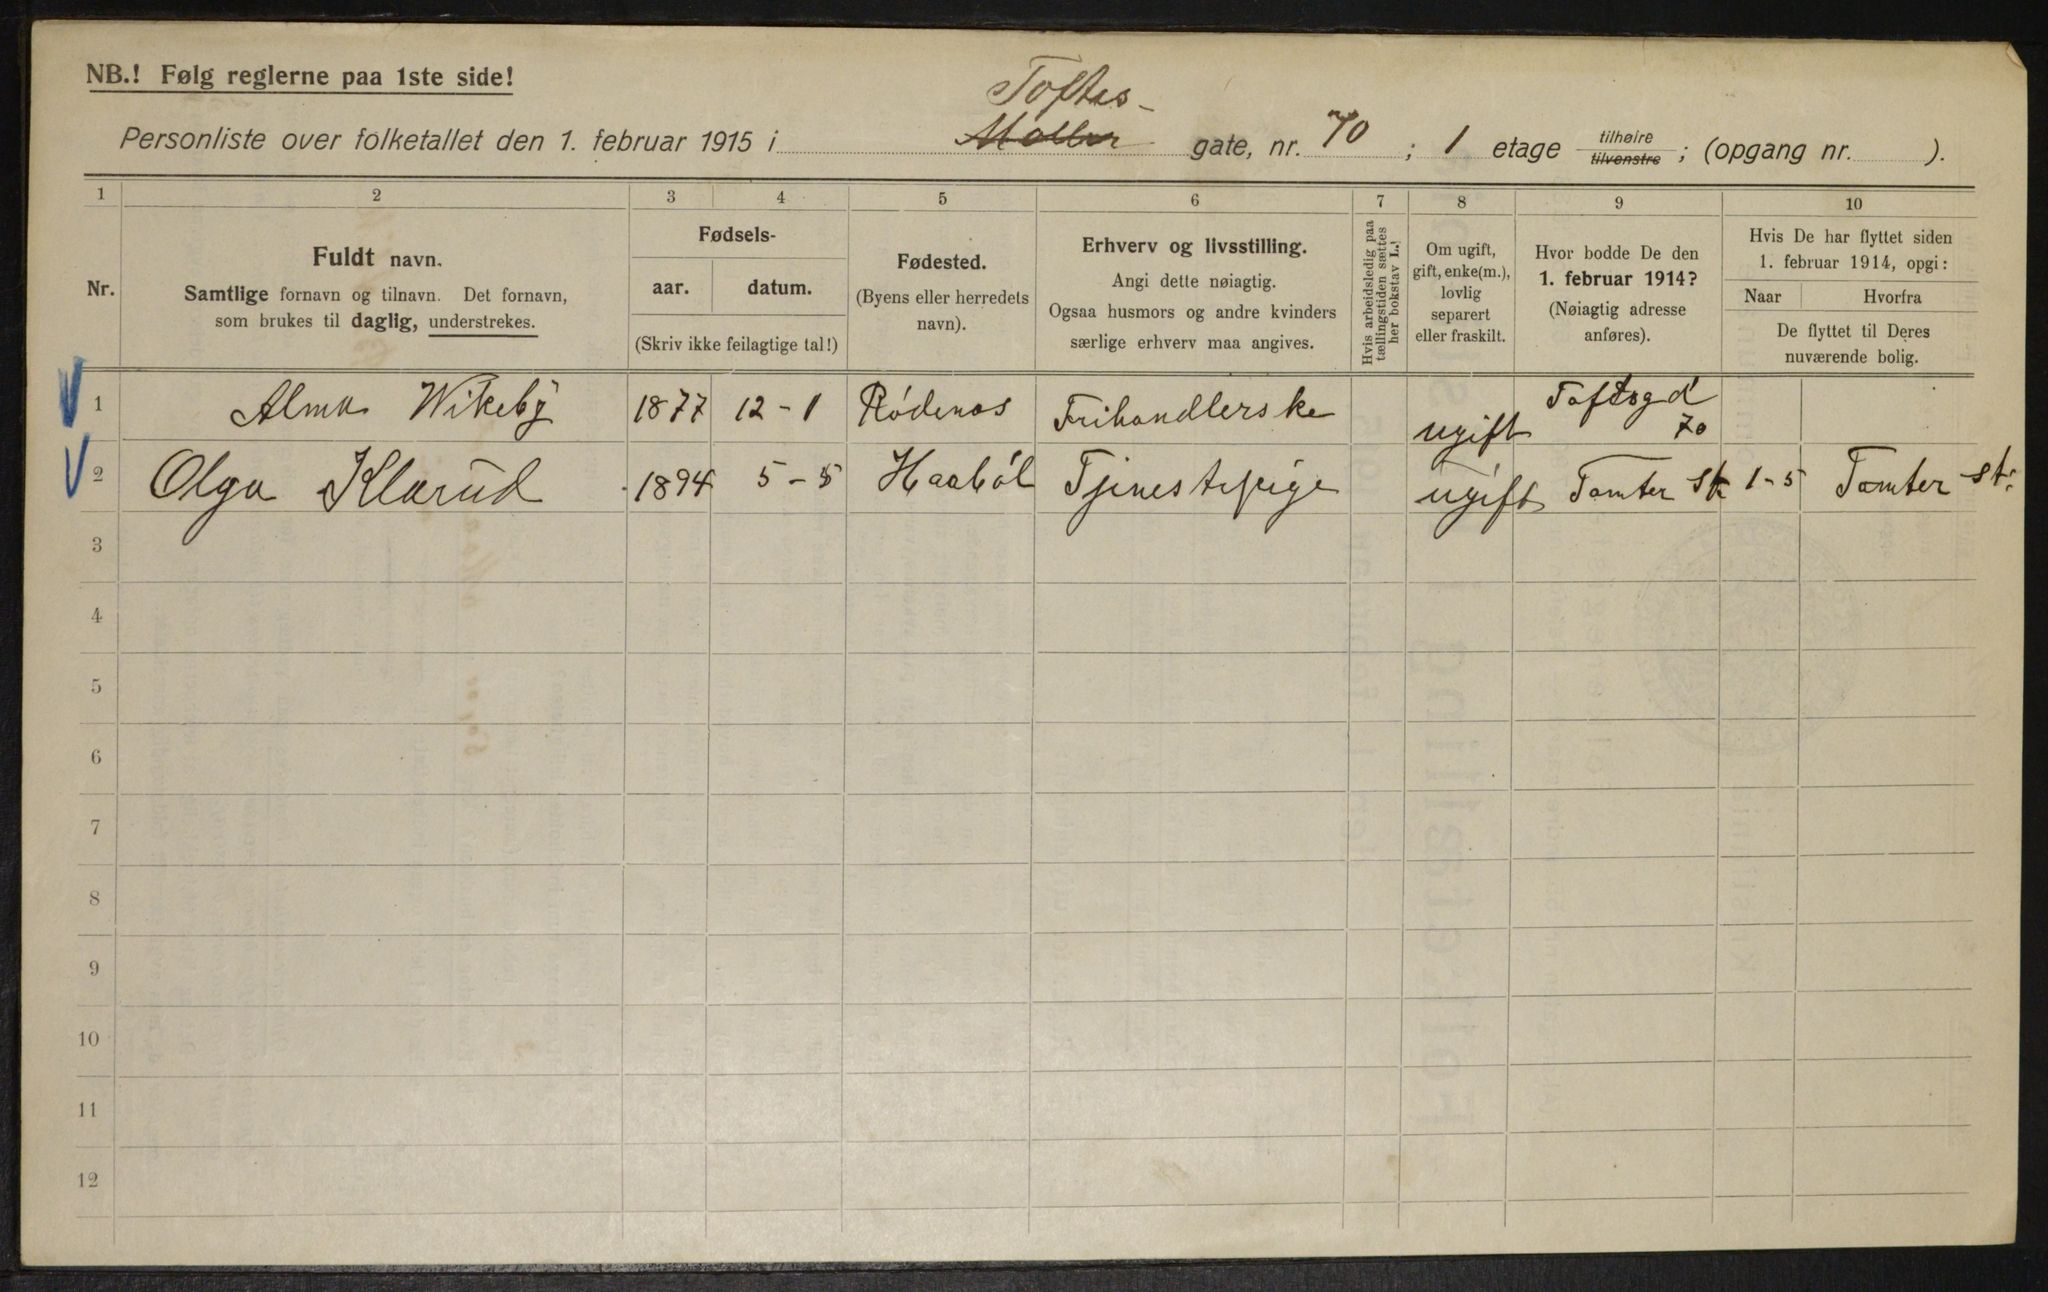 NB.! Følg reglerne paa 1ste side!
Toftes-
Personliste over folketallet den 1. februar 1915 i Møller gate, nr. 70; 1 etage tilhøire tilvenstre; (opgang nr. ).
1 2 3 4 5 6 7 8 9 10
Nr.
Fuldt navn.
Samtlige fornavn og tilnavn. Det fornavn,
som brukes til daglig, understrekes.
Fødsels-
aar. datum.
(Skriv ikke feilagtige tal!)
Fødested.
(Byens eller herredets
navn).
Erhverv og livsstilling.
Angi dette nøiagtig.
Ogsaa husmors og andre kvinders
særlige erhverv maa angives.
Hvis arbeidsledig paa
tællingstiden sættes
her bokstav L.!
Om ugift,
gift, enke(m.),
lovlig
separert
eller fraskilt.
Hvor bodde De den
1. februar 1914?
(Nøiagtig adresse
anføres).
Hvis De har flyttet siden
1. februar 1914, opgi:
Naar Hvorfra
De flyttet til Deres
nuværende bolig.
1 Alma Wikeby 1877 12-1 Rødenes Frihandlerske ugift Toftsgd 70
2 Olga Klarud 1894 5-5 Haabøl Tjinestepige ugift Tomter St 1-5 Tomter st.
3
4
5
6
7
8
9
10
11
12